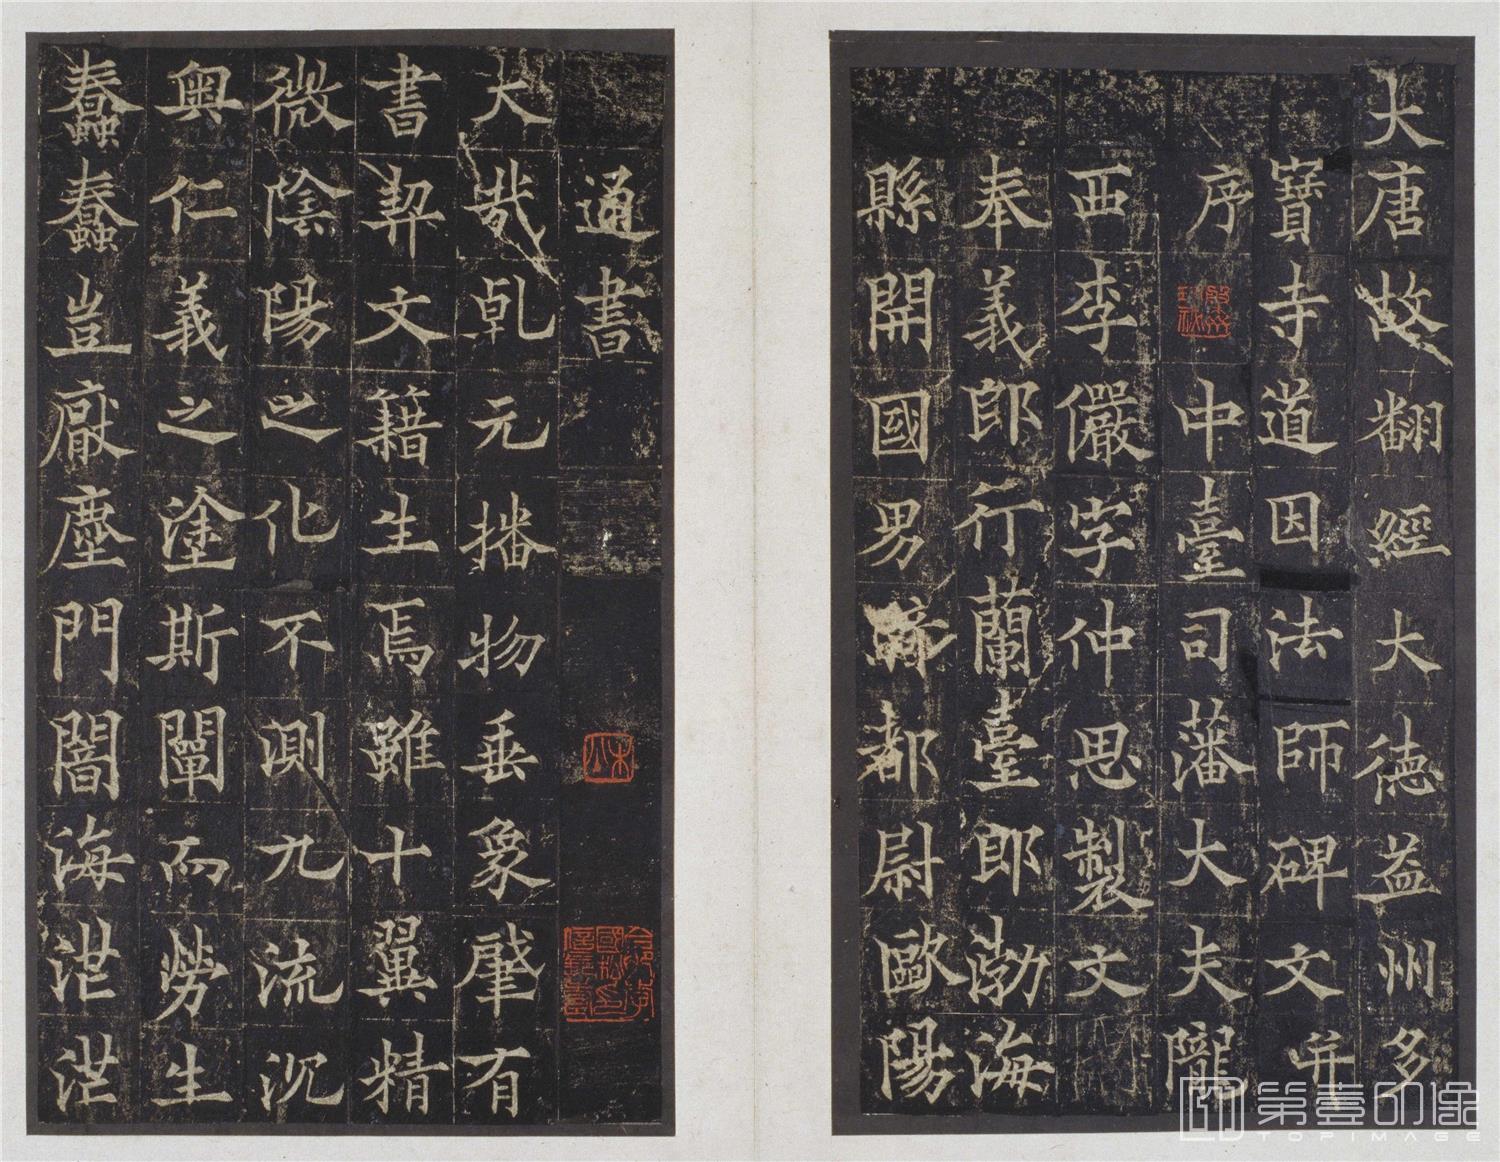 大唐故翻經大德益州多
寶寺道因法師碑文并
序 中臺司藩大夫隴
西李儼字仲思製文
奉義郎行蘭臺郎渤海
縣開國男 都尉歐陽
通書
大哉乹元播物垂象肇有
書契文籍生焉雖十翼精
微陰陽之化不測九流沉
奥仁義之塗斯闡而勞生
蠢蠢豈厭塵門闇海茫茫
第壹印像
TOPIMAGE